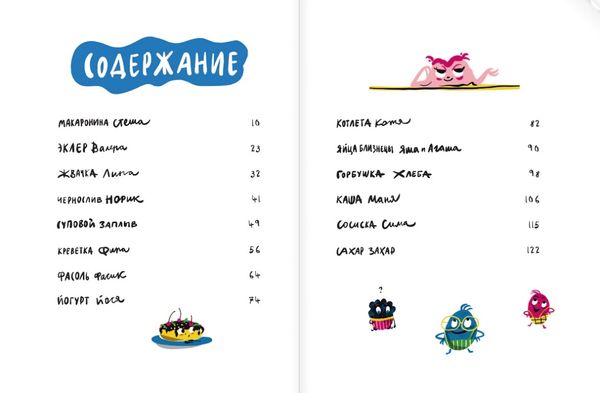 СОДЕРЖАНИЕ
МАКАРОНИНА Стеша 10
ЭКЛЕР Валера 23
ЖВАЧКА Лина 32
ЧЕРНОСЛИВ НОРИК 41
СУПОВОЙ ЗАПЛЫВ 49
КРЕВЕТКА Фина 56
ФАСОЛЬ Фасик 64
ЙОГУРТ Йося 74
КОТЛЕТА Катя 82
ЯЙЦА БЛИЗНЕЦЫ Яша и Агаша 90
ГОРБУШКА ХЛЕБА 98
КАША Маня 106
СОСИСКА Сима 115
САХАР ЗАХАР 122
?